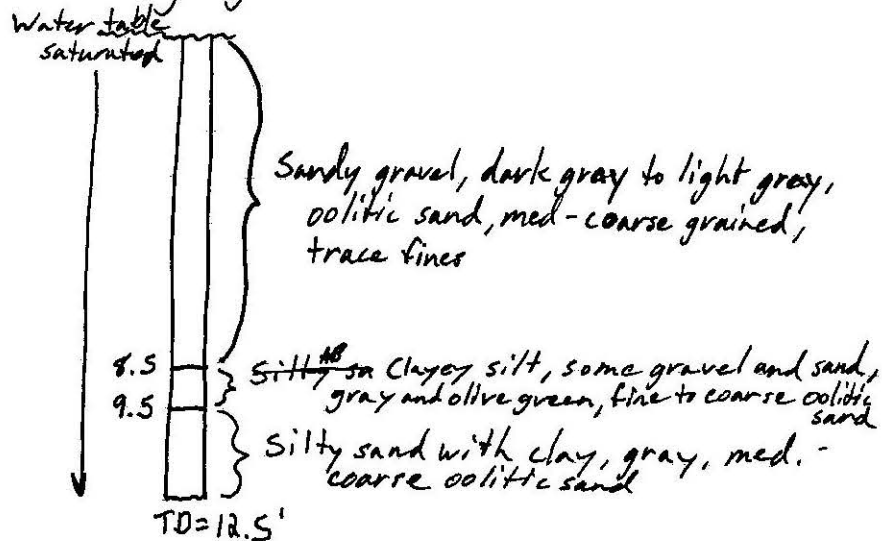 Water table
saturated
Sandy gravel, dark gray to light gray,
oolitic sand, med-coarse grained,
trace fines
8.5
Silty sa AB Clayey silt, some gravel and sand,
gray and olive green, fine to coarse oolitic
sand
9.5
Silty sand with clay, gray, med.-
coarse oolitic sand
TD=12.5'